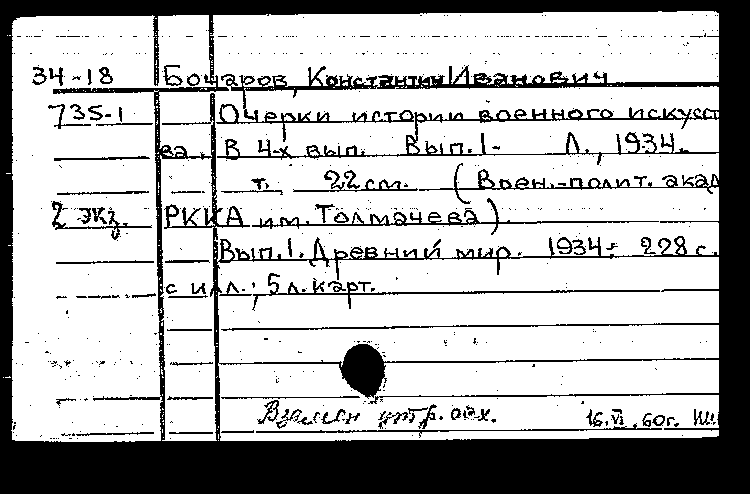 34-18 Бочаров, Константин Иванович
735-1 Очерки истории военного искусст
ва. В 4-х вып. Вып.1- Л., 1934.
т. 22 см. (Воен.-полит. акад
2 экз. РККА им. Толмачева).
Вып.1. Древний мир. 1934. 228 с.
с илл.; 5 л. карт.
Взамен утр. 16.VI.60г.